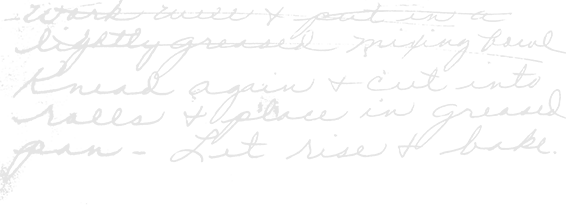 work well & put in a
lightly greased mixing bowl
Knead again & cut into
rolls & place in greased
pan - Let rise & bake.